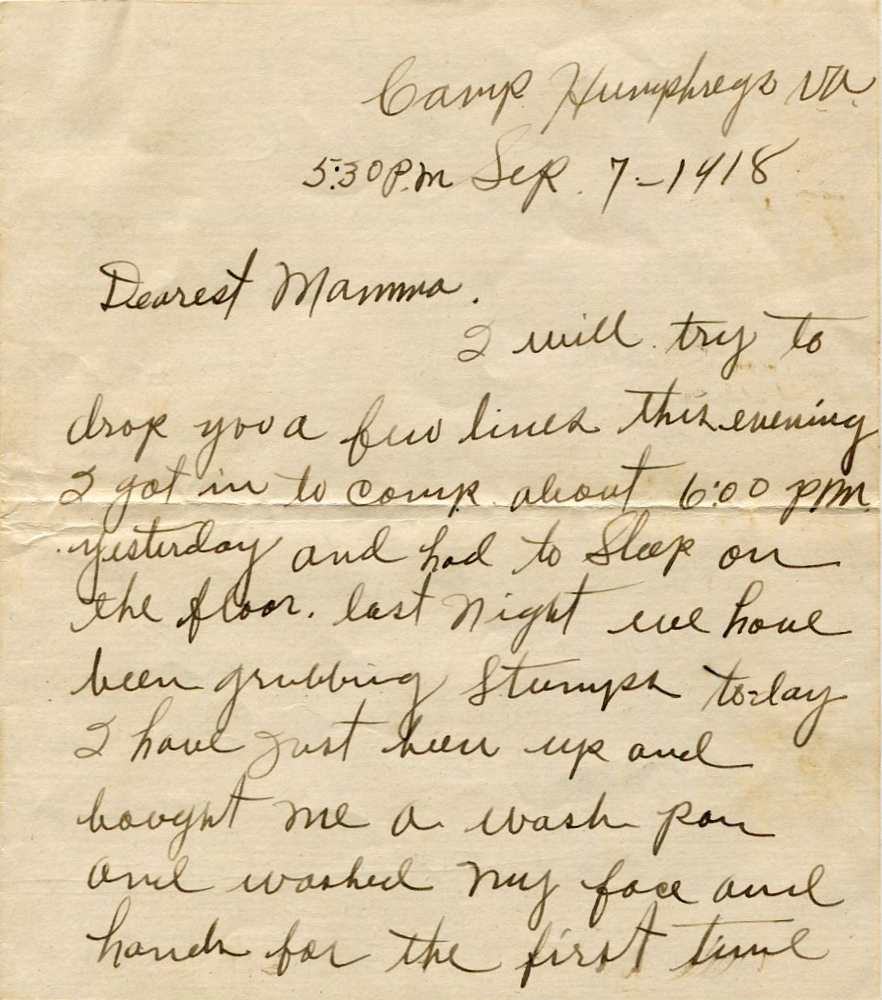 Camp Humphreys VA.
5:30 P.M Sep. 7-1918
Dearest Mamma.
I will try to
drop you a few lines this evening
I got in to camp about 6:00 P.M.
yesterday and had to Sleep on
the floor. last night we have
been grubbing Stumps to-day
I have just been up and
bought me a wash pan
and washed my face and
hands for the first time